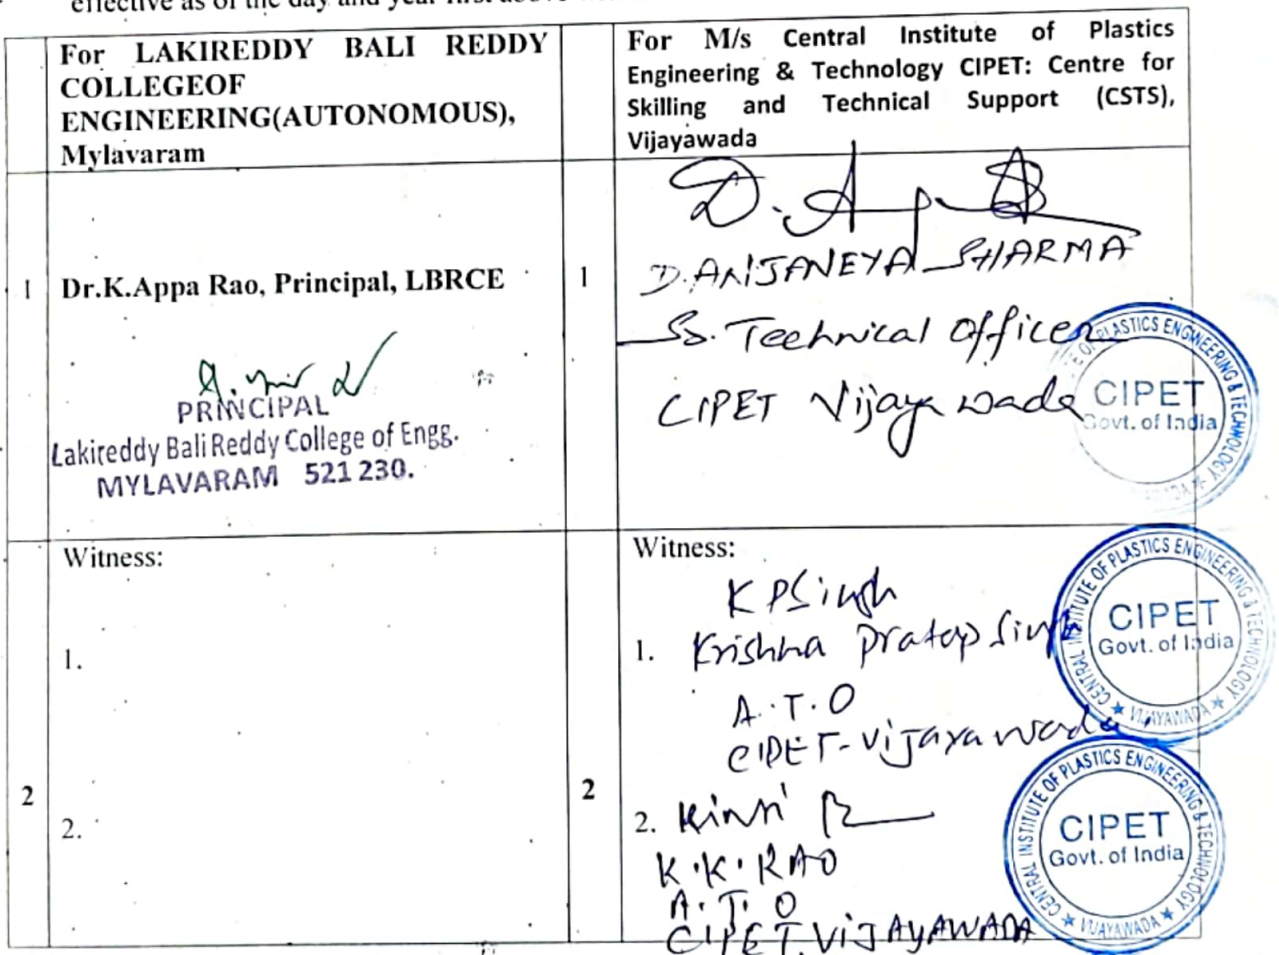 effective as of the day and year first above
For LAKIREDDY BALI REDDY
COLLEGEOF
ENGINEERING(AUTONOMOUS),
Mylavaram
For M/s Central Institute of Plastics
Engineering & Technology CIPET: Centre for
Skilling and Technical Support (CSTS),
Vijayawada
1
Dr.K.Appa Rao, Principal, LBRCE
PRINCIPAL
Lakireddy Bali Reddy College of Engg.
MYLAVARAM 521 230.
1
D. ANJANEYA SHARMA
Sr. Technical Officer
CIPET Vijayawada
CIPET
Govt. of India
OF PLASTICS ENGINEERING & TECHNOLOGY
2
Witness:
1.
2.
2
Witness:
K P Singh
1. Krishna Pratap Singh
A.T.O
CIPET-Vijayawada
CENTRAL INSTITUTE OF PLASTICS ENGINEERING & TECHNOLOGY
CIPET
Govt. of India
VIJAYAWADA
2.
K.K.RAO
A.T.O
CIPET, VIJAYAWADA
CENTRAL INSTITUTE OF PLASTICS ENGINEERING & TECHNOLOGY
CIPET
Govt. of India
VIJAYAWADA